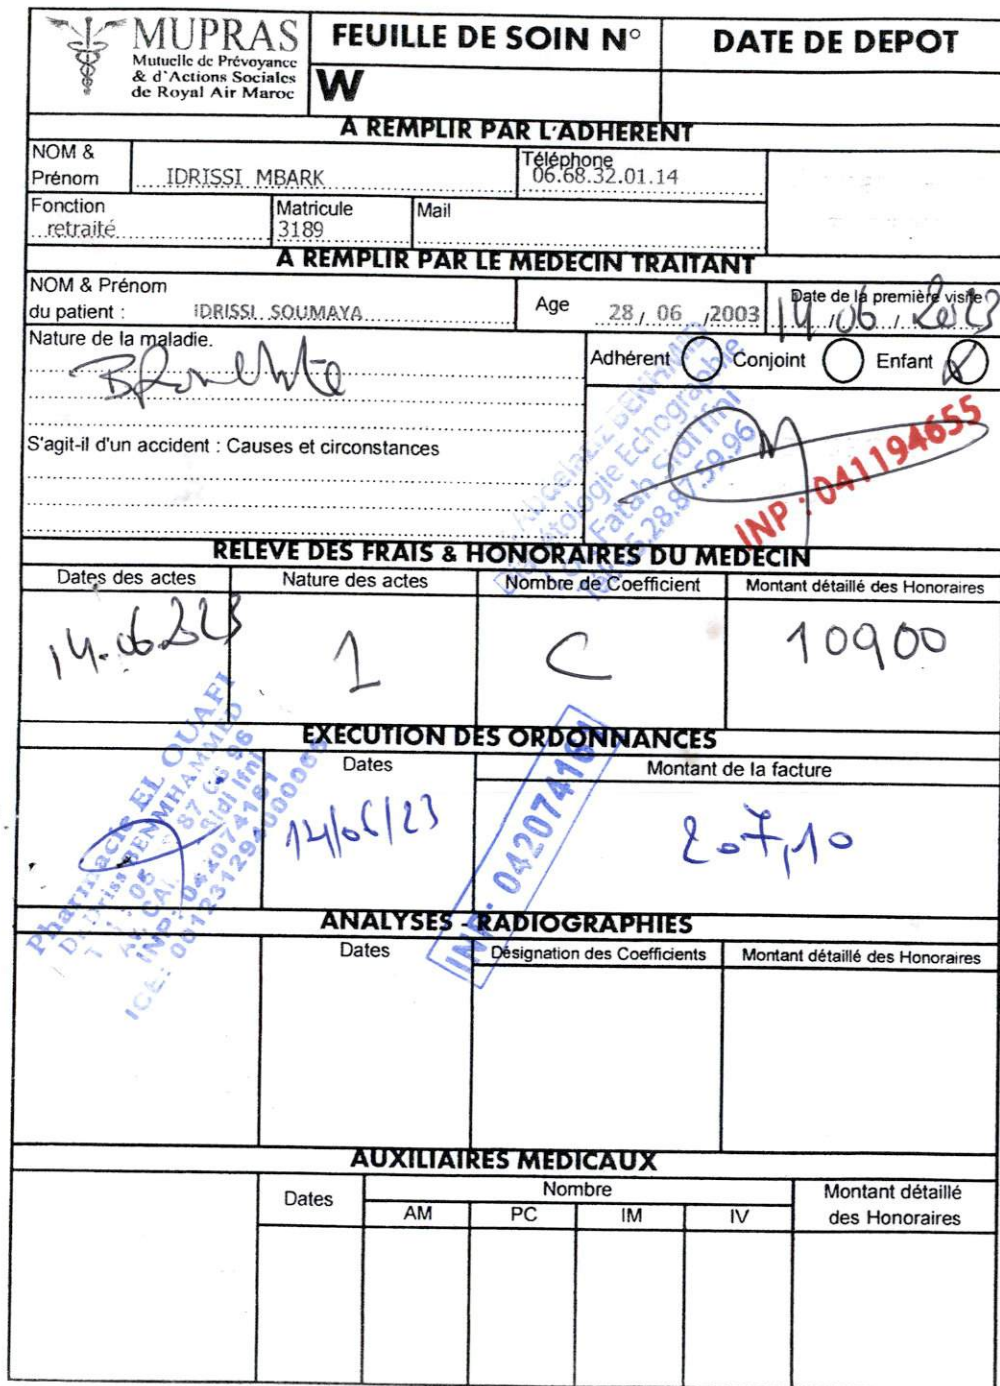 MUPRAS
Mutuelle de Prévoyance
& d'Actions Sociales
de Royal Air Maroc
FEUILLE DE SOIN N°
W
DATE DE DEPOT
A REMPLIR PAR L'ADHERENT
NOM & Prénom IDRISSI MBARK
Téléphone 06.68.32.01.14
Fonction retraité
Matricule 3189
Mail
A REMPLIR PAR LE MEDECIN TRAITANT
NOM & Prénom du patient : IDRISSI SOUMAYA
Age 28 / 06 / 2003
Date de la première visite 14/06/2023
Nature de la maladie.
Bronchite
Adhérent Conjoint Enfant
S'agit-il d'un accident : Causes et circonstances
Echographie
Sidi Ifni
INP : 041194655
RELEVE DES FRAIS & HONORAIRES DU MEDECIN
Dates des actes Nature des actes Nombre de Coefficient Montant détaillé des Honoraires
14.06.2023 1 C 10900
EXECUTION DES ORDONNANCES
Dates Montant de la facture
14/06/23 207,10
Pharmacie EL OUAFI
Dr. Driss BENMHAMMED
Sidi Ifni
INP : 042074161
INP: 042074161
ANALYSES - RADIOGRAPHIES
Dates Désignation des Coefficients Montant détaillé des Honoraires
AUXILIAIRES MEDICAUX
Dates Nombre Montant détaillé des Honoraires
AM PC IM IV